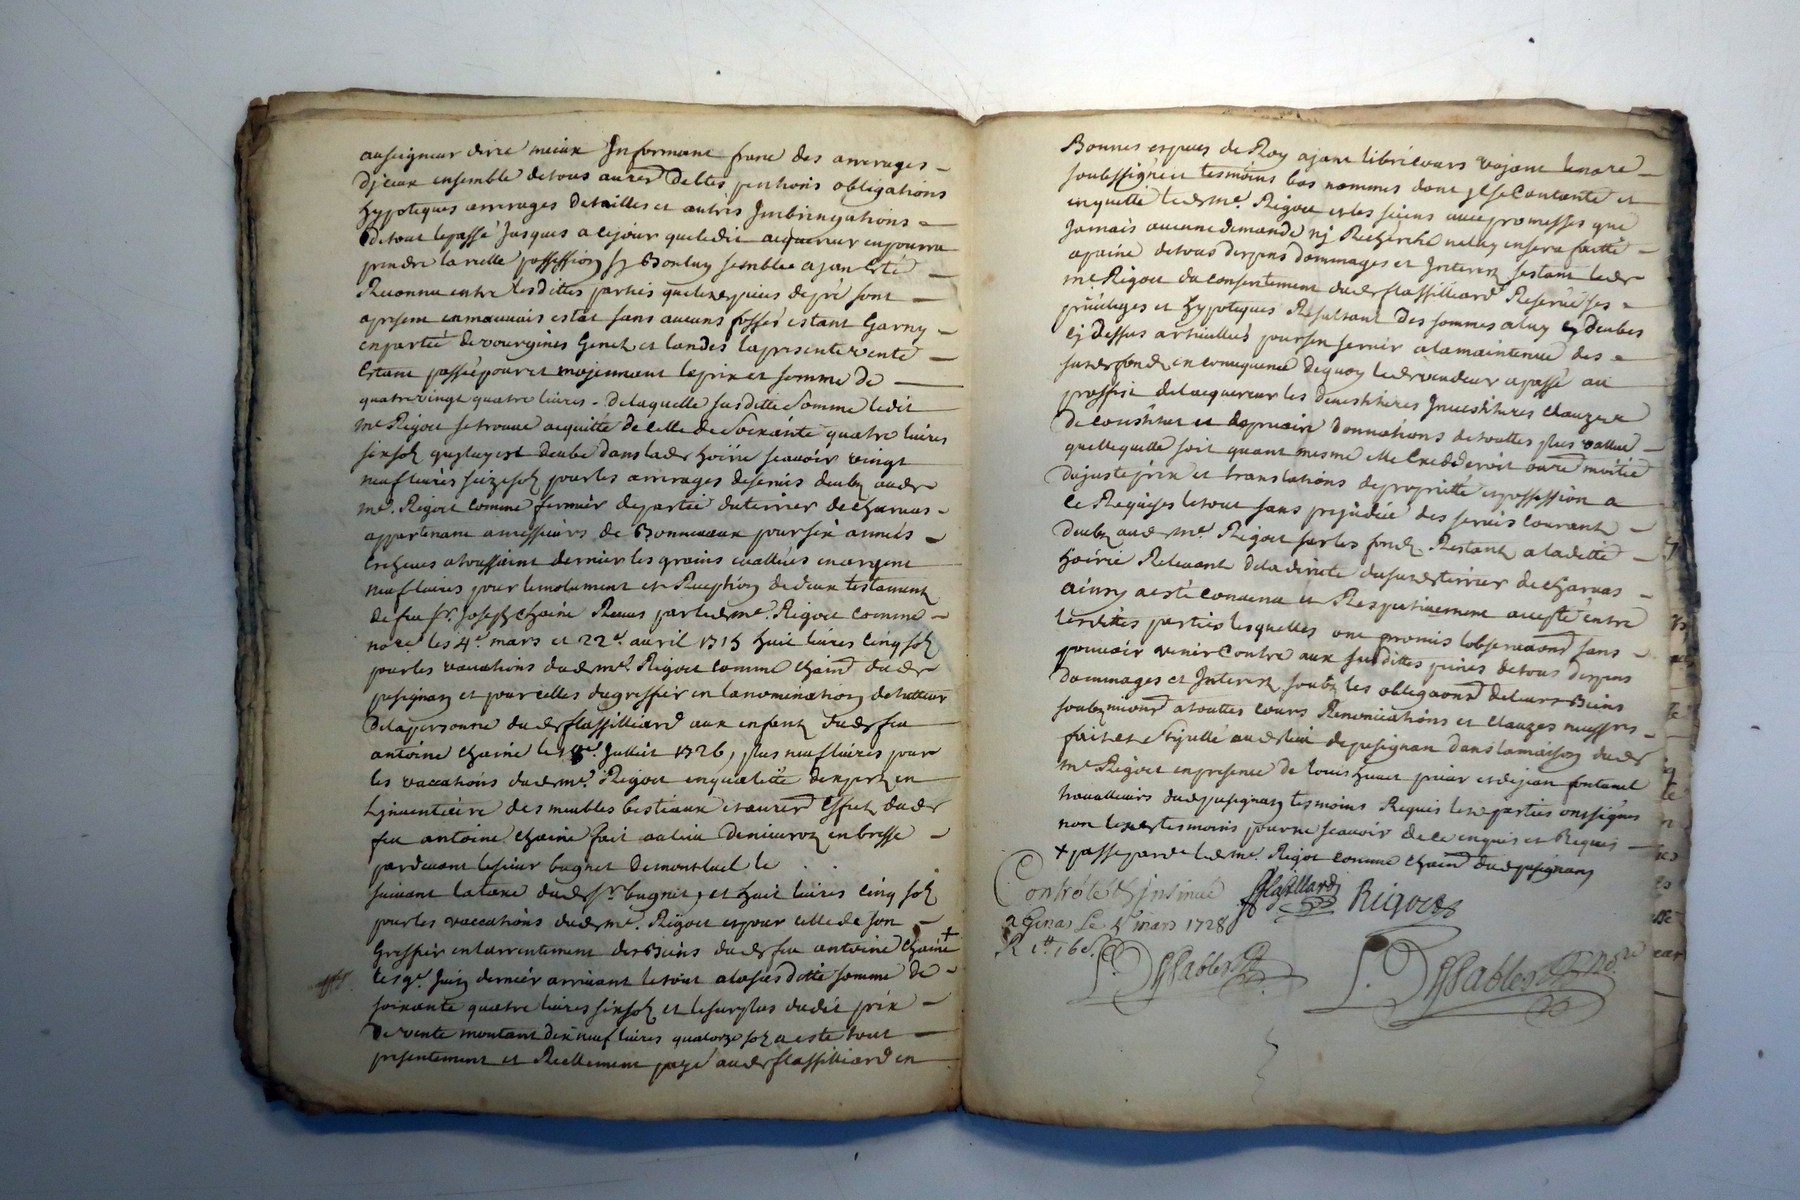 auseigneur dire mieux Informant franc des arrerages
Djceux ensemble detous autres debtes, pentions obligations
hypoteques arrerages detailles et autres Imbringations
Detout lepassé Jusques a cejour queledit acquereur enpourra
prendre la reelle possession sy Bonluy semble ajant esté
Reconnu entre lesdittes parties quelesdpieces depré sont
apresent enmauvais estat sans aucuns fossés estant Garny
enpartie de vourgines Genet et landes lapresente vente
Estant passée pour et mojennant leprix et somme de
quatrevingt quatre livres. delaquelle susditte somme ledit
me Rigoet setrouve acquitté de celle de soixante quatre livres
sixsolz quyluy est deube dans lad hoirie scavoir vingt
neuf livres seizesolz pour les arrerages deservis deubz aud
me. Rigoet comme fermier departie duterrier de charnas
appartenant amessieurs de Bonnevaux pour six années
Escheues atoussaint dernier les grains evallués enargent
neuf livres pour lemolument et Reception dedeux testament
de feu sr. Joseph chaine Receus par led me. Rigoet comme
nore. les 4e. mars et 22e. avril 1715 huit livres cinq solz
pour les vacations dud me. Rigoet comme chain dud
pusignan et pour celles dugreffier en lanomination detutteur
Delapersonne dud flassilliard aux enfants dud feu
antoine chaine le Juillet 1726, plus neuf livres pour
les vaccations dud me. Rigoet enqualitté dexpert en
Linventaire des meubles bestiaux et autres effets dud
feu antoine chaine fait aulieu denievroz enbresse
pardevant lesieur bugnet demontluel le . . .
suivant lataxe dud sr. bugnet, et huit livres cinq solz
pour les vaccations dud me. Rigoet et pour celle de son
Greffier enlarrentement des Biens dud feu antoine chaine +
les 9e. Juin dernier arrivant letout alasusditte somme de
soixante quatre livres sixsolz et lesurplus dudit prix
De vente montant dixneuf livres quatorze solz a esté tout
presentement et Reellement payé aud flassilliard en
Bonnes especes de Roy ajant librécours vojant lenore
soubssigné et tesmoins bas nommés dont jl se Contante et
enquitte led me. Rigoet et les siens avec promesses que
Jamais aucune demande nj Recherche neluy ensera faitte
apaine detous despens dommages et Interez sestant led
me Rigoet du consentement dud flassilliard Reservé ses
privileges et hypoteques Resultant des sommes aluy deubes
cj dessus articullées pour sen servir alamaintenue des
susd fondz en consequence dequoy led vendeur apassé au
proffit delacquereur les devestitures Investitures clauze
De constitut et depreccaire donnations detouttes plus vallue
quellequelle soit quant mesme elle Excederoit outre moitié
dujusteprix et translations depropriété et possession a
ce Requises letout sans prejudice des servis courant
deubz aud me. Rigoet sur les fondz Restant a ladette
hoirie Relevant deladirecte dususd terrier de charnas
ainsy a esté convenu et Respectivement accepté entre
lesdittes parties lesquelles ont promis lobservaons sans
pouvoir venir contre aux susdittes peines detous despens
Dommages et Interez soubz les obligaons deleurs Biens
soubzmions atouttes cours Renonciations et clauzes necessres
fait et stipullé aud lieu depusignan dans lamaison dud
me Rigoet enpresence de louis huet prieur et dejean fontanel
travailleurs dud pusignan tesmoins Requis les parties ont signés
non lesd tesmoins pour ne scavoir de ce enquis et Requis
+ passé pard led me. Rigoet comme chain dud pusignan
Contrôlé & jnsinué flassillard Rigoet
a Genas Le mars 1728
R 1tt. 16s.
Desables
Desables nore